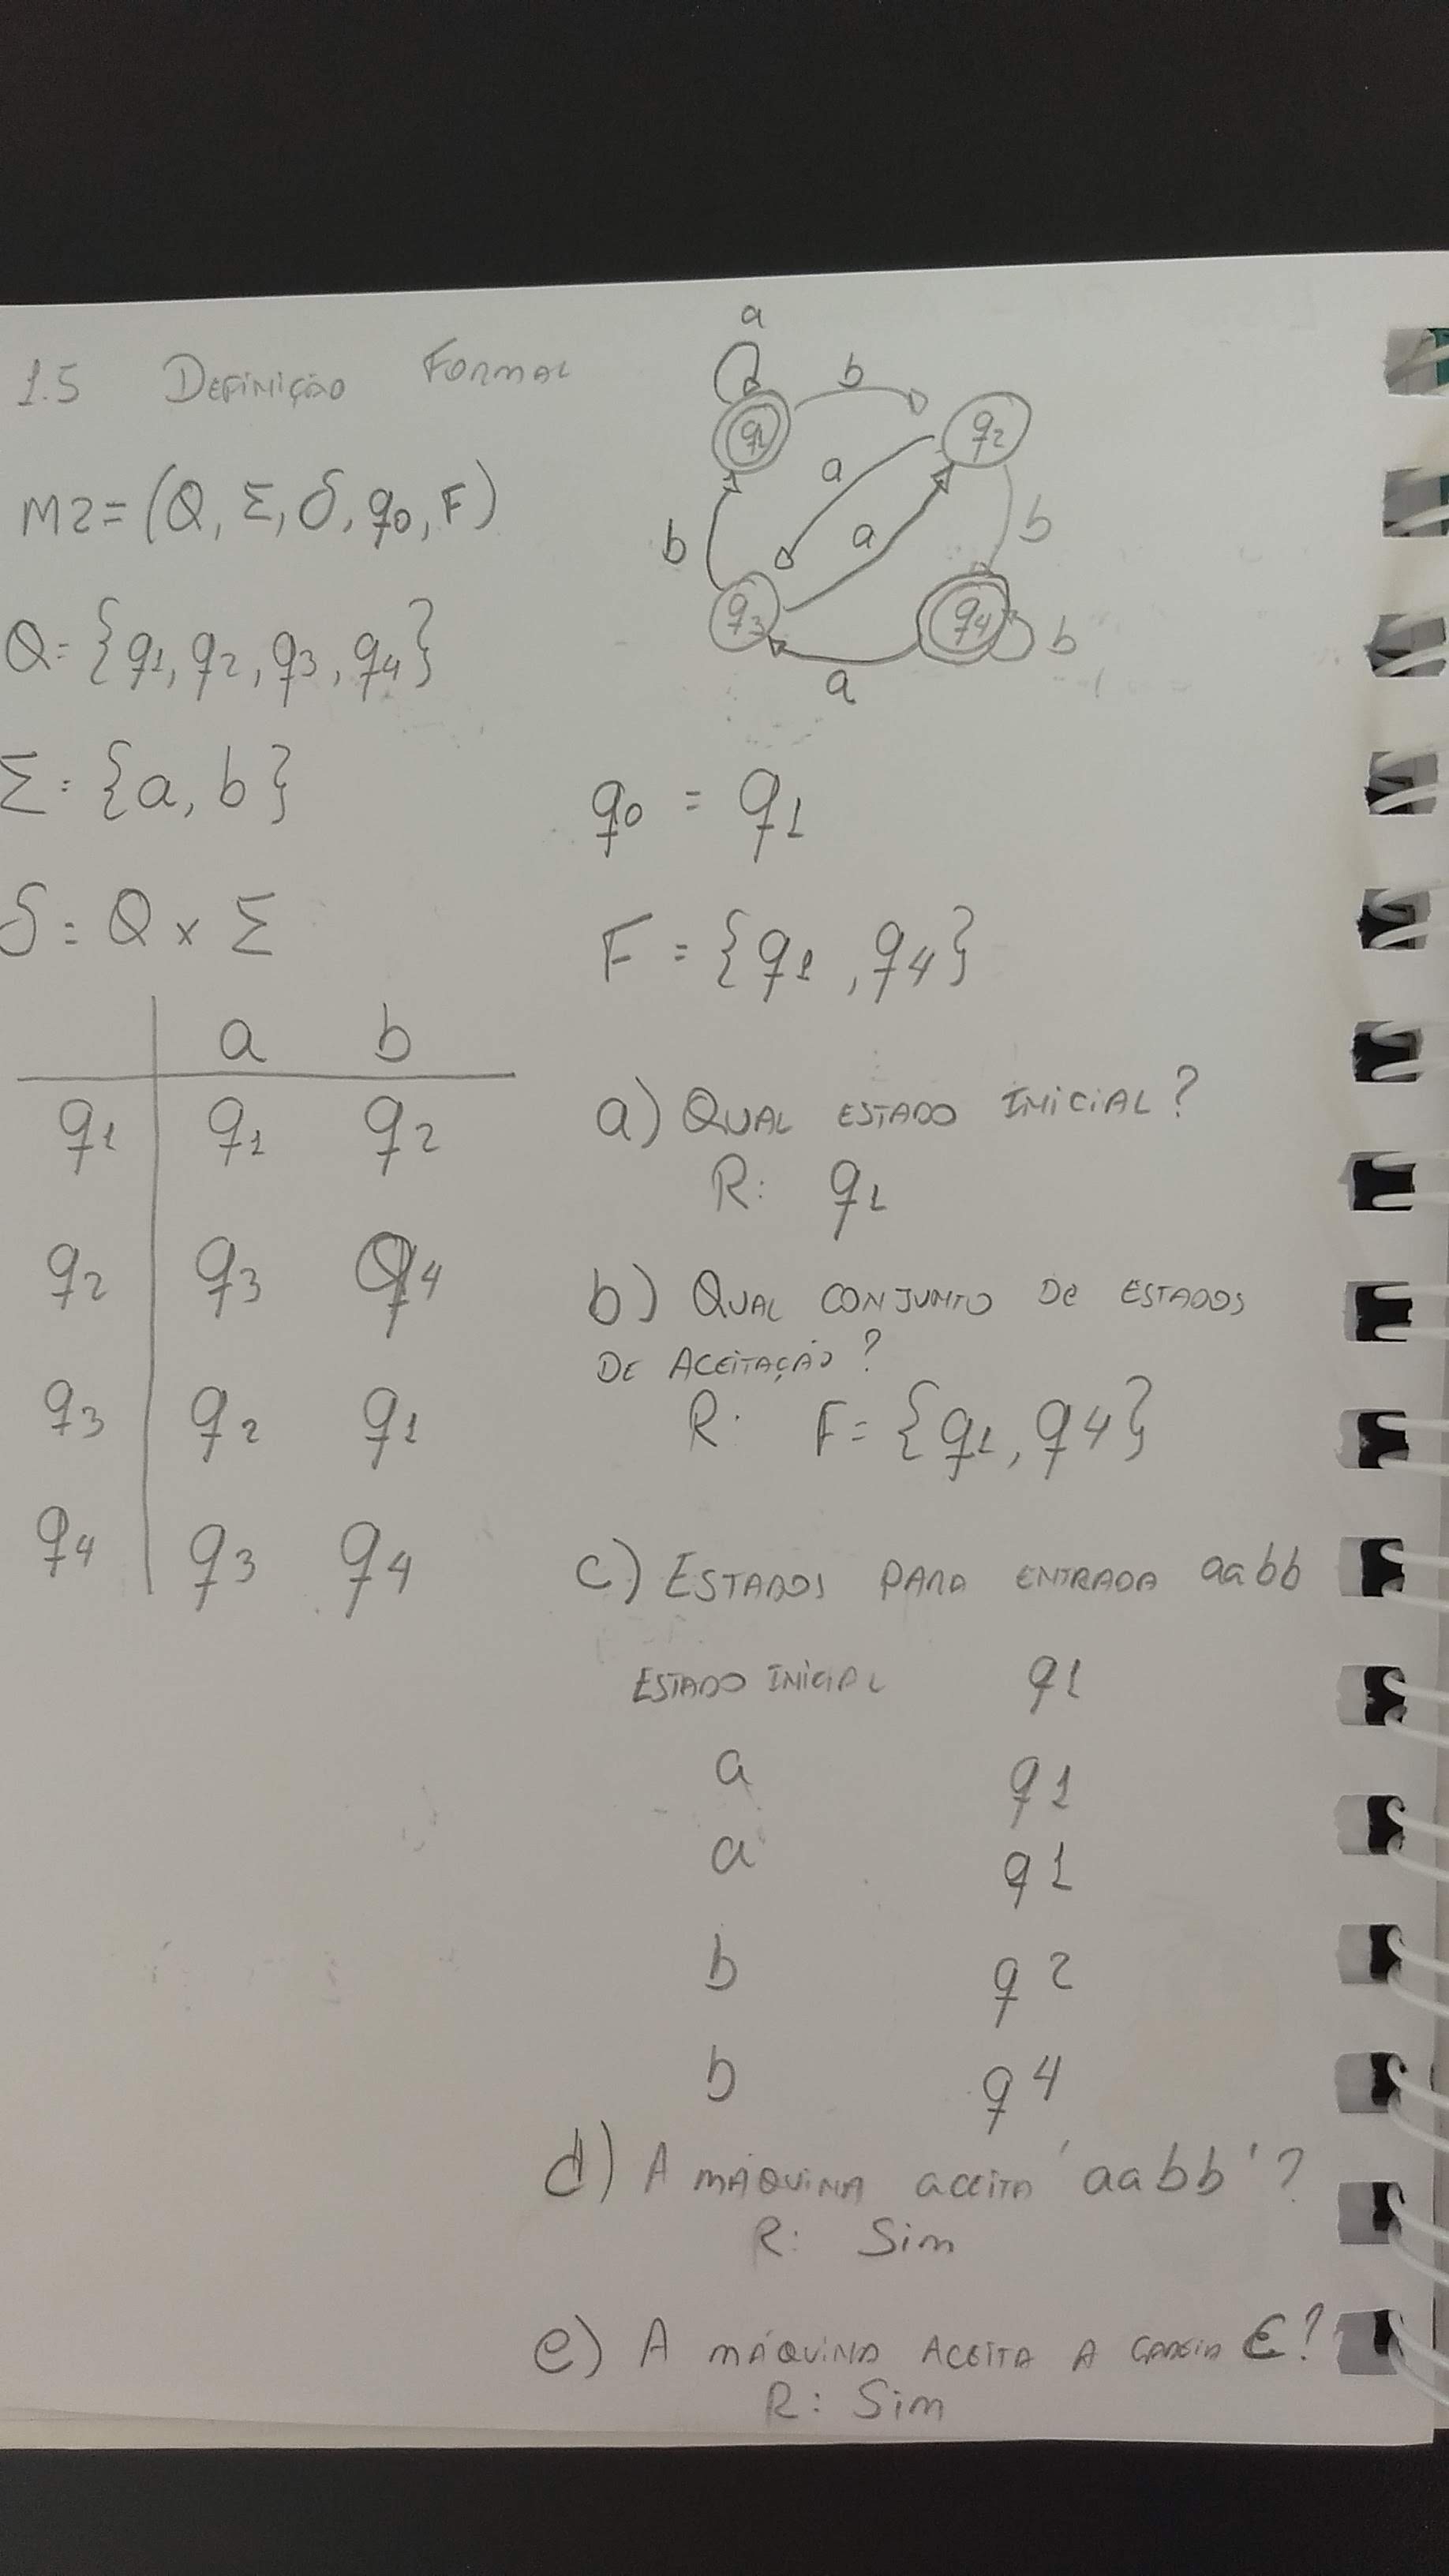 1.5 DEFINIÇÃO FORMAL
M2=(Q, Σ, δ, q0, F)
Q= {q1, q2, q3, q4}
Σ= {a, b}
δ= Q x Σ
a b
q1 q1 q2
q2 q3 q4
q3 q2 q1
q4 q3 q4
a
q1 b q2
a
b a b
q3 q4 b
a
q0 = q1
F = {q1, q4}
a) QUAL ESTADO INICIAL?
R: q1
b) QUAL CONJUNTO DE ESTADOS
DE ACEITAÇÃO?
R: F= {q1, q4}
c) ESTADOS PARA ENTRADA aabb
ESTADO INICIAL q1
a q1
a q1
b q2
b q4
d) A MÁQUINA aceita 'aabb'?
R: Sim
e) A MÁQUINA ACEITA A CADEIA ε?
R: Sim